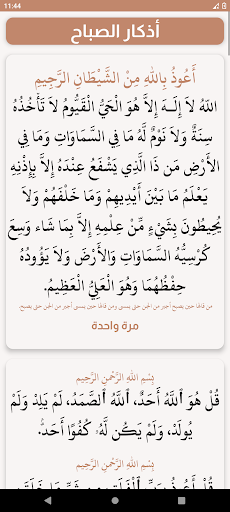 11:44
أذكار الصباح
أَعُوذُ بِاللهِ مِنْ الشَّيْطَانِ الرَّجِيمِ
اللهُ لاَ إِلَـهَ إِلاَّ هُوَ الْحَيُّ الْقَيُّومُ لاَ تَأْخُذُهُ
سِنَةٌ وَلاَ نَوْمٌ لَّهُ مَا فِي السَّمَاوَاتِ وَمَا فِي
الأَرْضِ مَن ذَا الَّذِي يَشْفَعُ عِنْدَهُ إِلاَّ بِإِذْنِهِ
يَعْلَمُ مَا بَيْنَ أَيْدِيهِمْ وَمَا خَلْفَهُمْ وَلاَ
يُحِيطُونَ بِشَيْءٍ مِّنْ عِلْمِهِ إِلاَّ بِمَا شَاء وَسِعَ
كُرْسِيُّهُ السَّمَاوَاتِ وَالأَرْضَ وَلاَ يَؤُودُهُ
حِفْظُهُمَا وَهُوَ الْعَلِيُّ الْعَظِيمُ.
من قالها حين يصبح أجير من الجن حتى يمسى ومن قالها حين يمسى أجير من الجن حتى يصبح.
مرة واحدة
بِسْمِ اللهِ الرَّحْمنِ الرَّحِيم
قُلْ هُوَ ٱللَّهُ أَحَدٌ، ٱللَّهُ ٱلصَّمَدُ، لَمْ يَلِدْ وَلَمْ
يُولَدْ، وَلَمْ يَكُن لَّهُۥ كُفُوًا أَحَدٌۢ.
بِسْمِ اللهِ الرَّحْمنِ الرَّحِيم